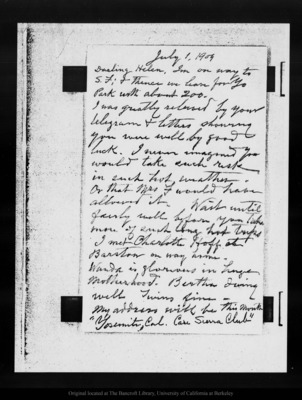 July 1, 1909
Darling Helen, I'm on way to
S.F; & thence we leave for Yo
Park with about 200.
I was greatly relieved by your
telegram & letters showing
you were well by good
luck. I never imagined you
would take such risk
in such hot weather
Or that Mrs would have
allowed it Wait until
fairly well before you take
more of such long hot trips
I met Charlotte at
Barstow on way
Wanda is glorious in huge
Motherhood. Bertha doing
well Twins fine -
My address will be this Month
"Yosemite, Cal. Care Sierra Club"
Original located at The Bancroft Library, University of California at Berkeley